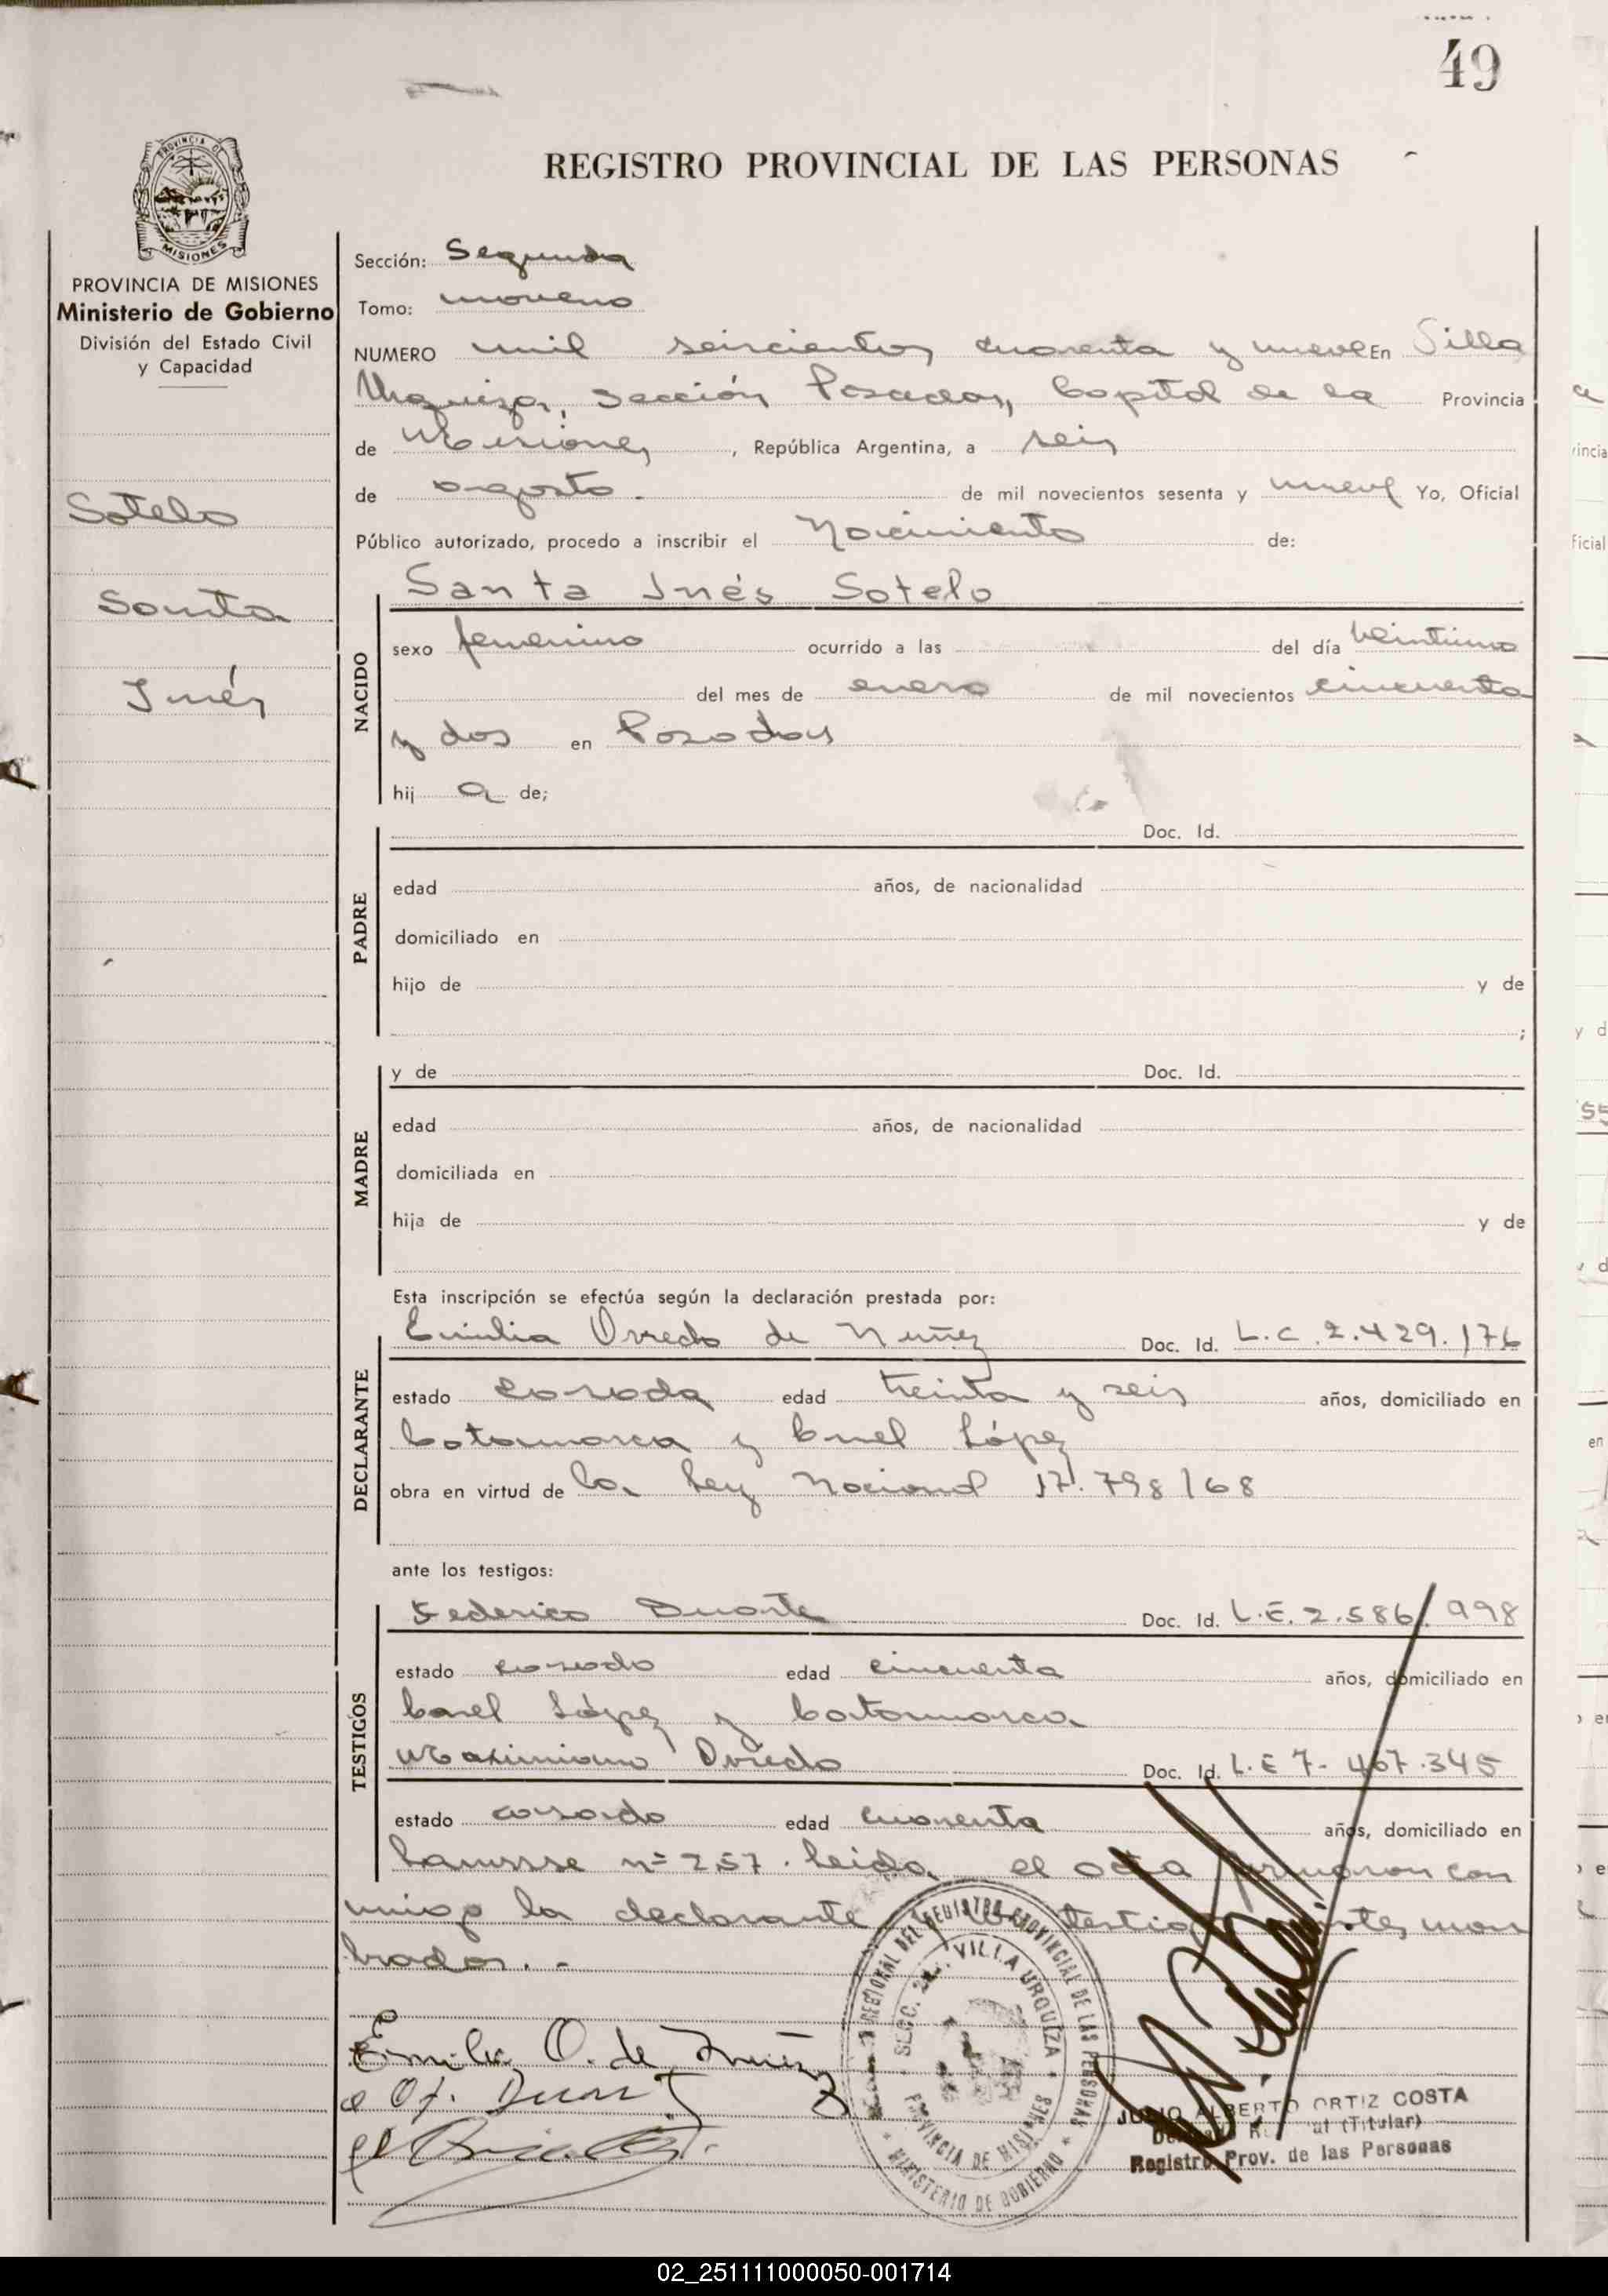 49
REGISTRO PROVINCIAL DE LAS PERSONAS
PROVINCIA DE MISIONES
PROVINCIA DE MISIONES
Ministerio de Gobierno
División del Estado Civil
y Capacidad
Sotelo
Santa
Inés
Sección: Segunda
Tomo: moreno
NUMERO mil seiscientos cuarenta y nueve En Villa
Urquiza, Sección Posadas, Capital de la Provincia
de Misiones, República Argentina, a seis
de agosto. de mil novecientos sesenta y nueve Yo, Oficial
Público autorizado, procedo a inscribir el Nacimiento de:
Santa Inés Sotelo
NACIDO
sexo femenino ocurrido a las del día veintiuno
del mes de enero de mil novecientos cincuenta
y dos en Posadas
hij a de;
PADRE
Doc. Id.
edad años, de nacionalidad
domiciliado en
hijo de y de
;
MADRE
y de Doc. Id.
edad años, de nacionalidad
domiciliada en
hija de y de
Esta inscripción se efectúa según la declaración prestada por:
DECLARANTE
Emilia Oviedo de Nuñez Doc. Id. L.C. 2.429.176
estado casada edad treinta y seis años, domiciliado en
Catamarca y Cnel López
obra en virtud de la Ley Nacional 17.798/68
ante los testigos:
TESTIGOS
Federico Duarte Doc. Id. L.E. 2.586.998
estado casado edad cincuenta años, domiciliado en
Cnel López y Catamarca
Maximiano Oviedo Doc. Id. L.E 7.467.345
estado casado edad cuarenta años, domiciliado en
Lanusse nº 257. Leida el acta firmaron con
migo la declarante y los testigos antes nom
brados. -
Emilia O. de Nuñez
REGIONAL DEL REGISTRO PROVINCIAL DE LAS PERSONAS
SECC. 2a. VILLA URQUIZA
PROVINCIA DE MISIONES
MINISTERIO DE GOBIERNO
JULIO ALBERTO ORTIZ COSTA
(Titular)
Registro Prov. de las Personas
02_251111000050-001714